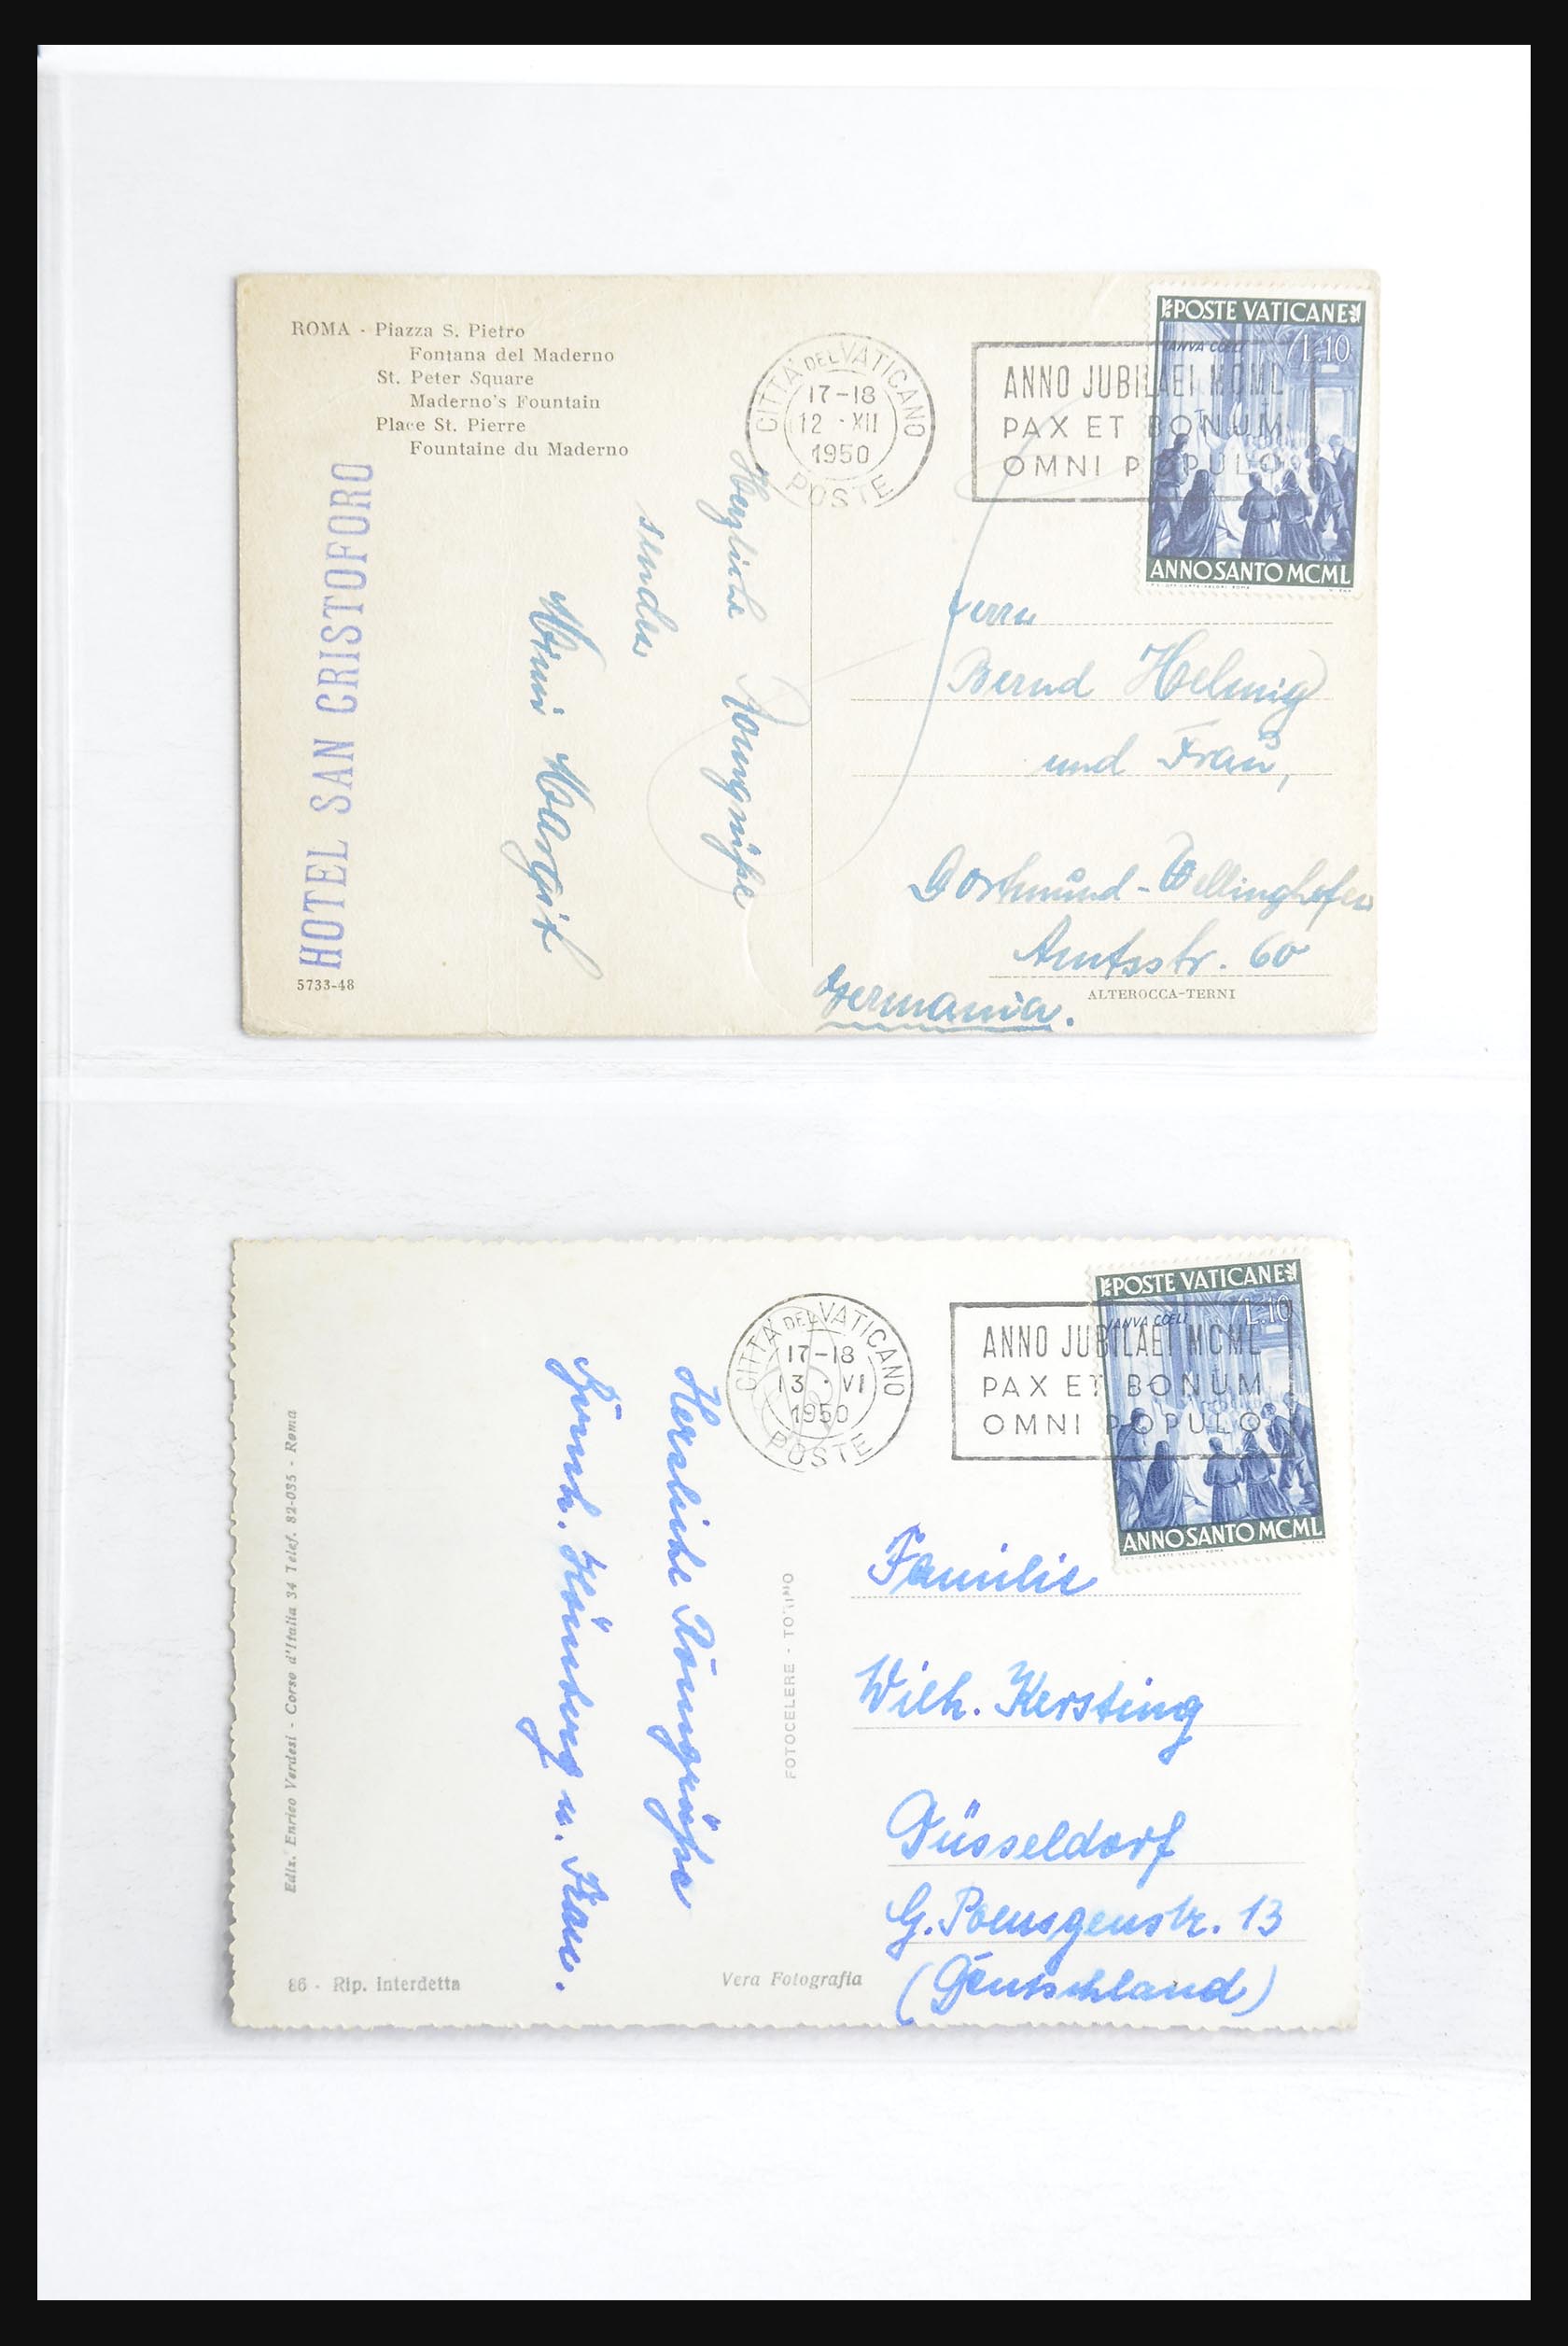 ROMA - Piazza S. Pietro
Fontana del Maderno
St. Peter Square
Maderno's Fountain
Place St. Pierre
Fountaine du Maderno
HOTEL SAN CRISTOFORO
5733-48
Herzliche Romgrüße
senden
Margit
CITTA' DEL VATICANO
17-18
12 ·XII
1950
POSTE
ANNO JUBILAEI MCML
PAX ET BONUM
OMNI POPULO
POSTE VATICANE
IANVA COELI
L.10
ANNO SANTO MCML
Herrn
Bernd Helmig
und Frau,
Dortmund-Wellinghofen
Amtsstr. 60
Germania.
ALTEROCCA-TERNI
Ediz. Enrico Verdesi - Corso d'Italia 34 Telef. 82-035 - Roma
86 - Rip. interdetta
Herzliche Romgrüße
u. Frau.
FOTOCELERE - TORINO
Vera Fotografia
CITTA' DEL VATICANO
17-18
13 · VI
1950
POSTE
ANNO JUBILAEI MCML
PAX ET BONUM
OMNI POPULO
POSTE VATICANE
IANVA COELI
L.10
ANNO SANTO MCML
Familie
Wilh. Kersting
Düsseldorf
G. Poensgenstr. 13
(Deutschland)